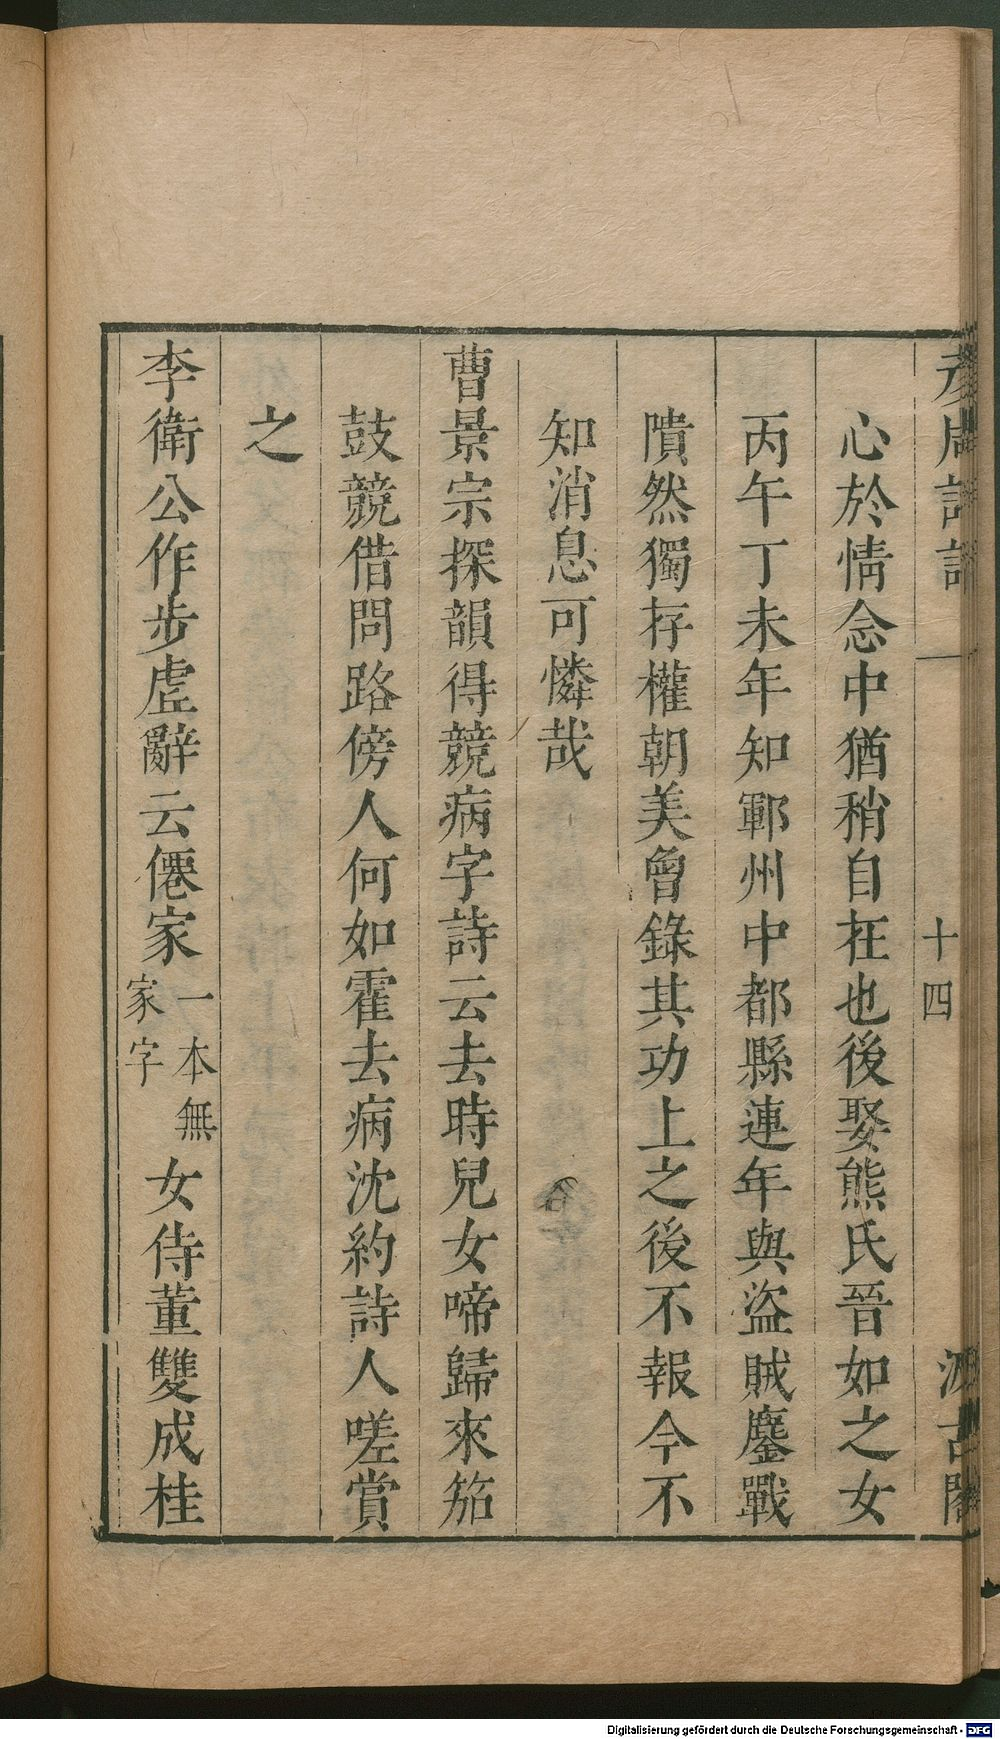 彥周詩話
十四
汲古閣
心於情念中猶稍自在也後娶熊氏晉如之女
丙午丁未年知鄆州中都縣連年與盜賊鏖戰
隤然獨存權朝美曾錄其功上之後不報今不
知消息可憐哉
曹景宗探韻得競病字詩云去時兒女啼歸來笳
鼓競借問路傍人何如霍去病沈約詩人嗟賞
之
李衛公作步虛辭云僊家一本無家字女侍董雙成桂
Digitalisierung gefördert durch die Deutsche Forschungsgemeinschaft - DFG